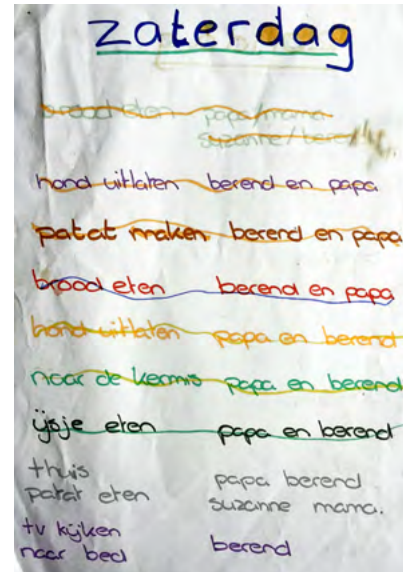 zaterdag
brood eten papa/mama
suzanne/berend
hond uitlaten berend en papa
patat maken berend en papa
brood eten berend en papa
hond uitlaten papa en berend
naar de kermis papa en berend
ijsje eten papa en berend
thuis papa berend
patat eten suzanne mama.
tv kijken
naar bed berend